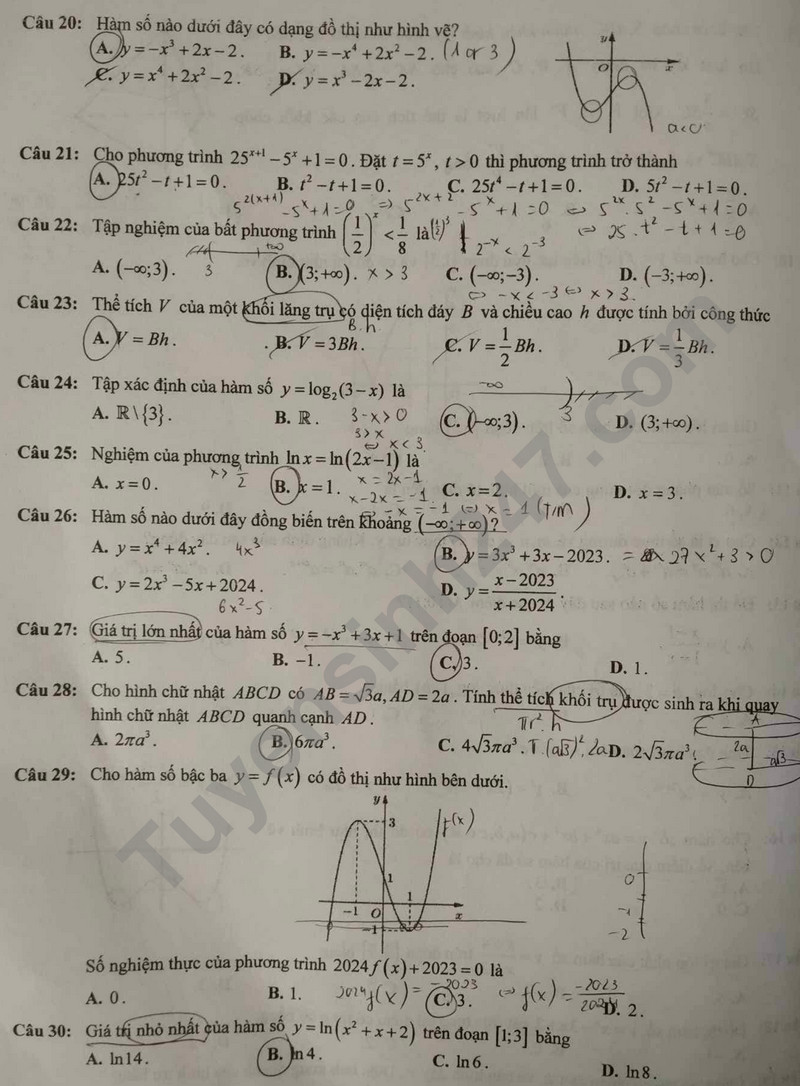 Câu 20: Hàm số nào dưới đây có dạng đồ thị như hình vẽ?
A. y = −x³ + 2x − 2. B. y = −x⁴ + 2x² − 2. (1 or 3)
C. y = x⁴ + 2x² − 2. D. y = x³ − 2x − 2.
y
O
x
a<0
Câu 21: Cho phương trình 25ˣ⁺¹ − 5ˣ + 1 = 0. Đặt t = 5ˣ, t > 0 thì phương trình trở thành
A. 25t² − t + 1 = 0. B. t² − t + 1 = 0. C. 25t⁴ − t + 1 = 0. D. 5t² − t + 1 = 0.
5²⁽ˣ⁺¹⁾ − 5ˣ + 1 = 0 ⇒ 5²ˣ⁺² − 5ˣ + 1 = 0 ⇔ 5²ˣ.5² − 5ˣ + 1 = 0
Câu 22: Tập nghiệm của bất phương trình (1/2)ˣ < 1/8 là
⇔ 25.t² − t + 1 = 0
2⁻ˣ < 2⁻³
+∞
3
A. (−∞;3). B. (3;+∞). x > 3 C. (−∞;−3). D. (−3;+∞).
⇔ −x < −3 ⇔ x > 3.
Câu 23: Thể tích V của một khối lăng trụ có diện tích đáy B và chiều cao h được tính bởi công thức
B.h
A. V = Bh. B. V = 3Bh. C. V = 1/2 Bh. D. V = 1/3 Bh.
Câu 24: Tập xác định của hàm số y = log₂(3 − x) là
−∞
3
A. ℝ\{3}. B. ℝ. 3-x>0 C. (−∞;3). D. (3;+∞).
3>x
⇔ x<3
Câu 25: Nghiệm của phương trình ln x = ln(2x−1) là
x > 1/2
x = 2x-1
A. x = 0. B. x = 1. C. x = 2. D. x = 3.
x-2x = -1
-x = -1 ⇔ x = 1 (T/m)
Câu 26: Hàm số nào dưới đây đồng biến trên khoảng (−∞;+∞)?
A. y = x⁴ + 4x². 4x³ B. y = 3x³ + 3x − 2023. = 27x² + 3 > 0
C. y = 2x³ − 5x + 2024. D. y = (x − 2023)/(x + 2024).
6x²-5
Câu 27: Giá trị lớn nhất của hàm số y = −x³ + 3x + 1 trên đoạn [0;2] bằng
A. 5. B. −1. C. 3. D. 1.
Câu 28: Cho hình chữ nhật ABCD có AB = √3a, AD = 2a. Tính thể tích khối trụ được sinh ra khi quay
hình chữ nhật ABCD quanh cạnh AD.
πr².h
A
A. 2πa³. B. 6πa³. C. 4√3πa³. π.(a√3)².2a D. 2√3πa³.
2a
a√3
D
Câu 29: Cho hàm số bậc ba y = f(x) có đồ thị như hình bên dưới.
y
3
f(x)
1
1
−1
O
x
−1
0
-1
-2
Số nghiệm thực của phương trình 2024f(x) + 2023 = 0 là
A. 0. B. 1. 2024f(x) = -2023 C. 3. ⇔ f(x) = -2023/2024 D. 2.
Câu 30: Giá trị nhỏ nhất của hàm số y = ln(x² + x + 2) trên đoạn [1;3] bằng
A. ln14. B. ln 4. C. ln 6. D. ln 8.
Tuyensinh247.com